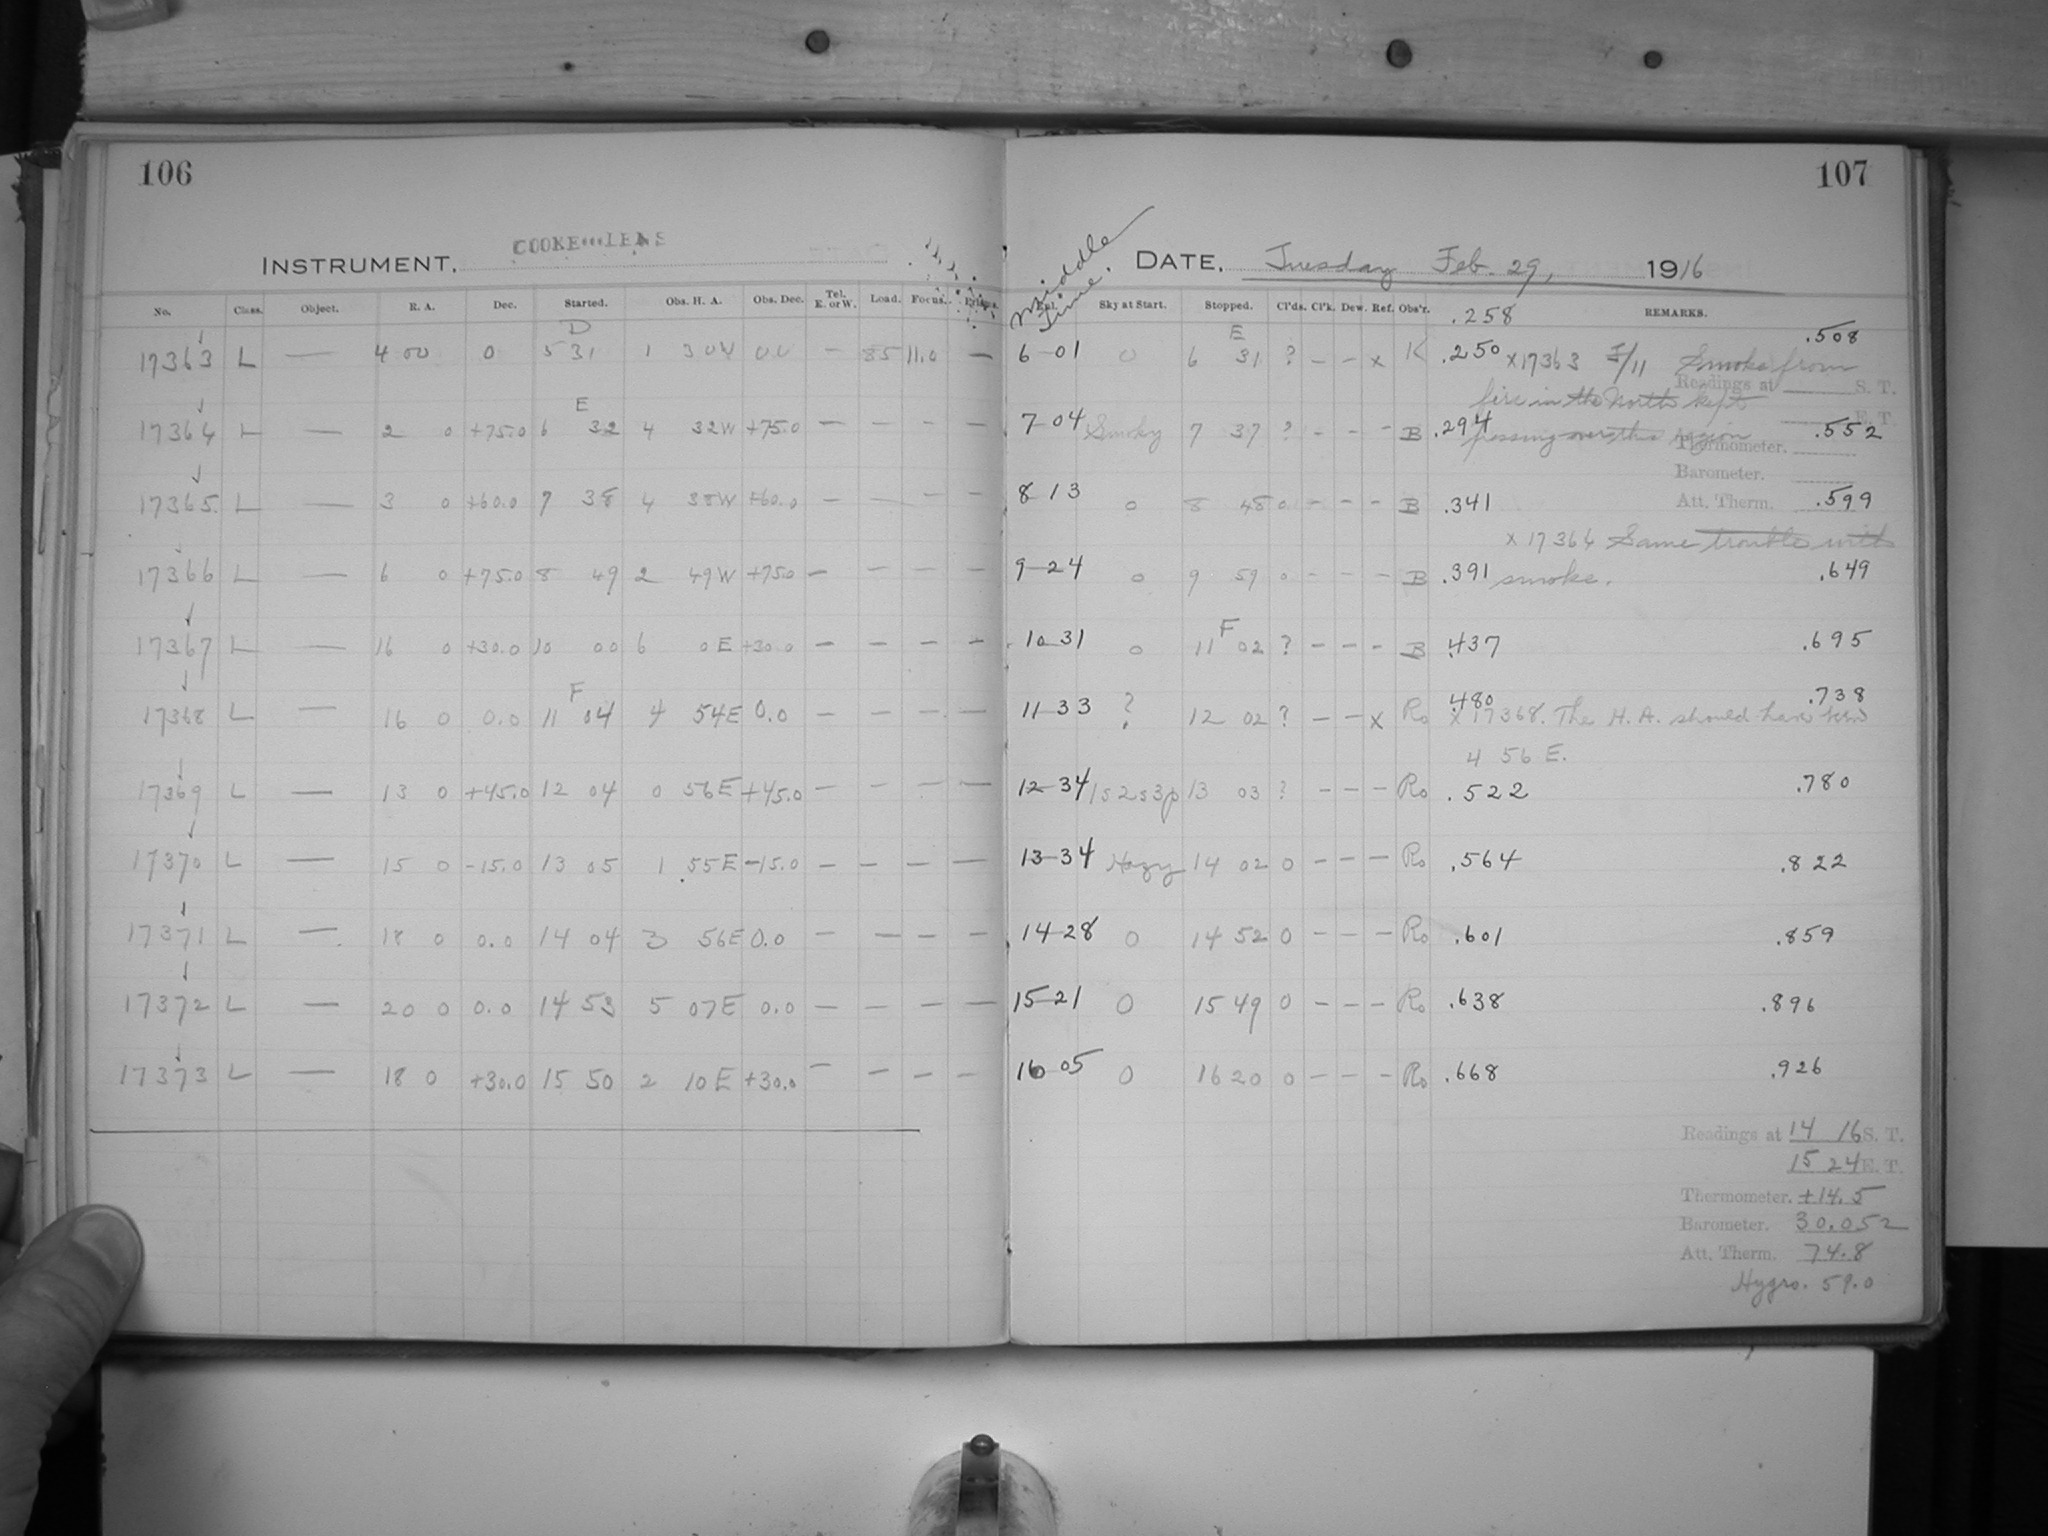 106
COOKE LENS
INSTRUMENT.
No. Class. Object. R. A. Dec. Started. Obs. H. A. Obs. Dec. Tel. E. or W. Load. Focus.
D
17363 L — 4 00 0 5 31 1 30W 0.0 — 85 11.0 —
E
17364 L — 2 0 +75.0 6 32 4 32W +75.0 — — — —
17365 L — 3 0 +60.0 7 38 4 38W +60.0 — — — —
17366 L — 6 0 +75.0 8 49 2 49W +75.0 — — — —
17367 L — 16 0 +30.0 10 00 6 0E +30.0 — — — —
F
17368 L — 16 0 0.0 11 04 4 54E 0.0 — — — —
17369 L — 13 0 +45.0 12 04 0 56E +45.0 — — — —
17370 L — 15 0 -15.0 13 05 1 55E -15.0 — — — —
17371 L — 18 0 0.0 14 04 3 56E 0.0 — — — —
17372 L — 20 0 0.0 14 53 5 07E 0.0 — — — —
17373 L — 18 0 +30.0 15 50 2 10E +30.0 — — — —
107
Middle Time.
DATE, Tuesday Feb. 29, 1916
Sky at Start. Stopped. Cl'ds. Cl'k. Dew. Ref. Obs'r. REMARKS.
.258
E
6-01 0 6 31 ? — — x K .250 x17363 F/11 Smoke from .508
Readings at S. T.
fire in the North kept
E. T.
7-04 Smoky 7 37 ? - - - B .294 passing over this region .552
Thermometer.
Barometer.
Att. Therm.
8-13 0 8 48 0 - - - B .341 .599
x 17364 Same trouble with
9-24 0 9 59 0 - - - B .391 smoke. .649
F
10-31 0 11 02 ? - - - B .437 .695
11-33 ? 12 02 ? — — x Ro .480 .738
x 17368. The H. A. should have been
4 56 E.
12-34 1s2s3p 13 03 ? - - - Ro .522 .780
13-34 Hazy 14 02 0 - - - Ro .564 .822
14-28 0 14 52 0 - - - Ro .601 .859
15-21 0 15 49 0 - - - Ro .638 .896
16-05 0 16 20 0 - - - Ro .668 .926
Readings at 14 16 S. T.
15 24 E. T.
Thermometer. +14.5
Barometer. 30.052
Att. Therm. 74.8
Hygro. 59.0